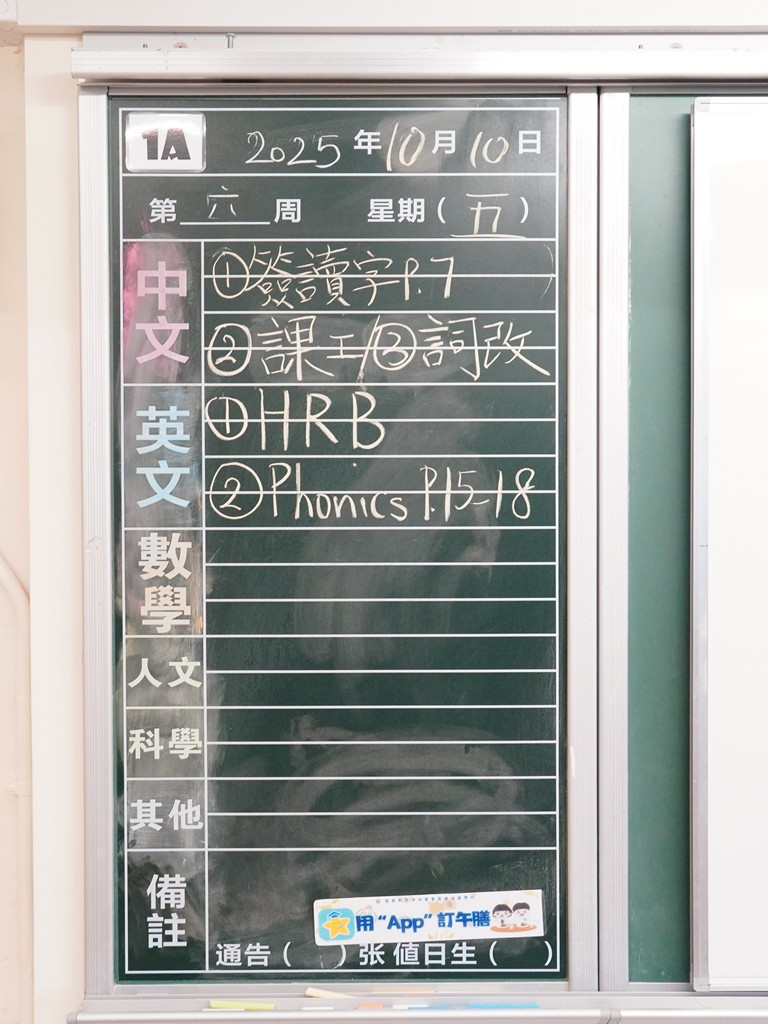 1A 2025年10月10日
第六周 星期(五)
中文 ①簽讀字P.7
②課工/③詞改
英文 ①HRB
②Phonics P.15-18
數學
人文
科學
其他
備註
用“App”訂午膳
通告( )张 值日生( )